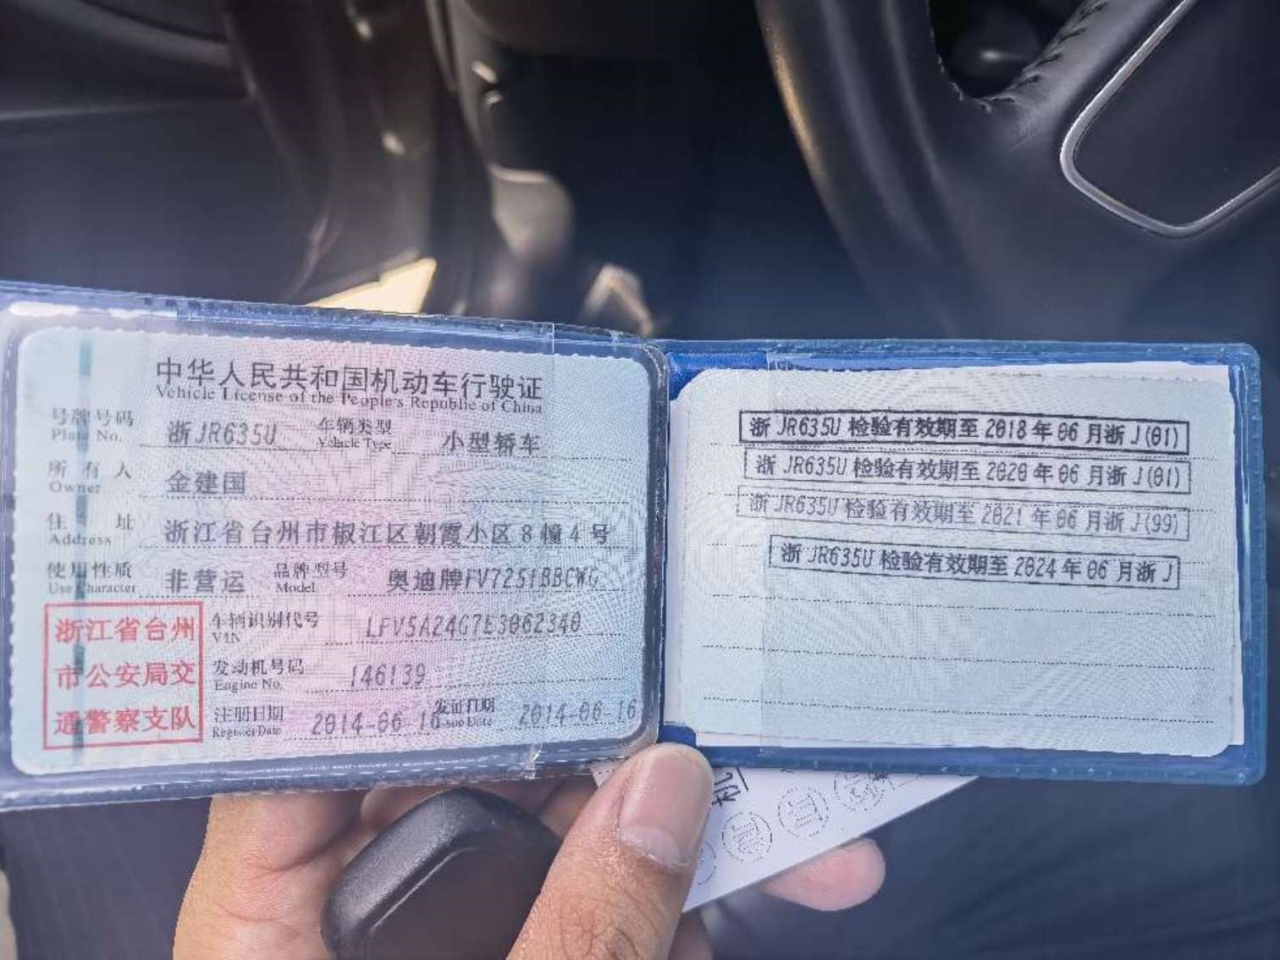 中华人民共和国机动车行驶证
Vehicle License of the People's Republic of China
号牌号码 浙JR635U 车辆类型 小型轿车
Plate No. Vehicle Type
所有人 金建国
Owner
住址 浙江省台州市椒江区朝霞小区8幢4号
Address
使用性质 非营运 品牌型号 奥迪牌FV7251BBCWG
Use Character Model
浙江省台州
市公安局交
通警察支队
车辆识别代号 LFV5A24G7E3062340
VIN
发动机号码 146139
Engine No.
注册日期 2014-06-16 发证日期 2014-06-16
Register Date Issue Date
浙JR635U检验有效期至2018年06月浙J(01)
浙JR635U检验有效期至2020年06月浙J(01)
浙JR635U检验有效期至2021年06月浙J(99)
浙JR635U检验有效期至2024年06月浙J